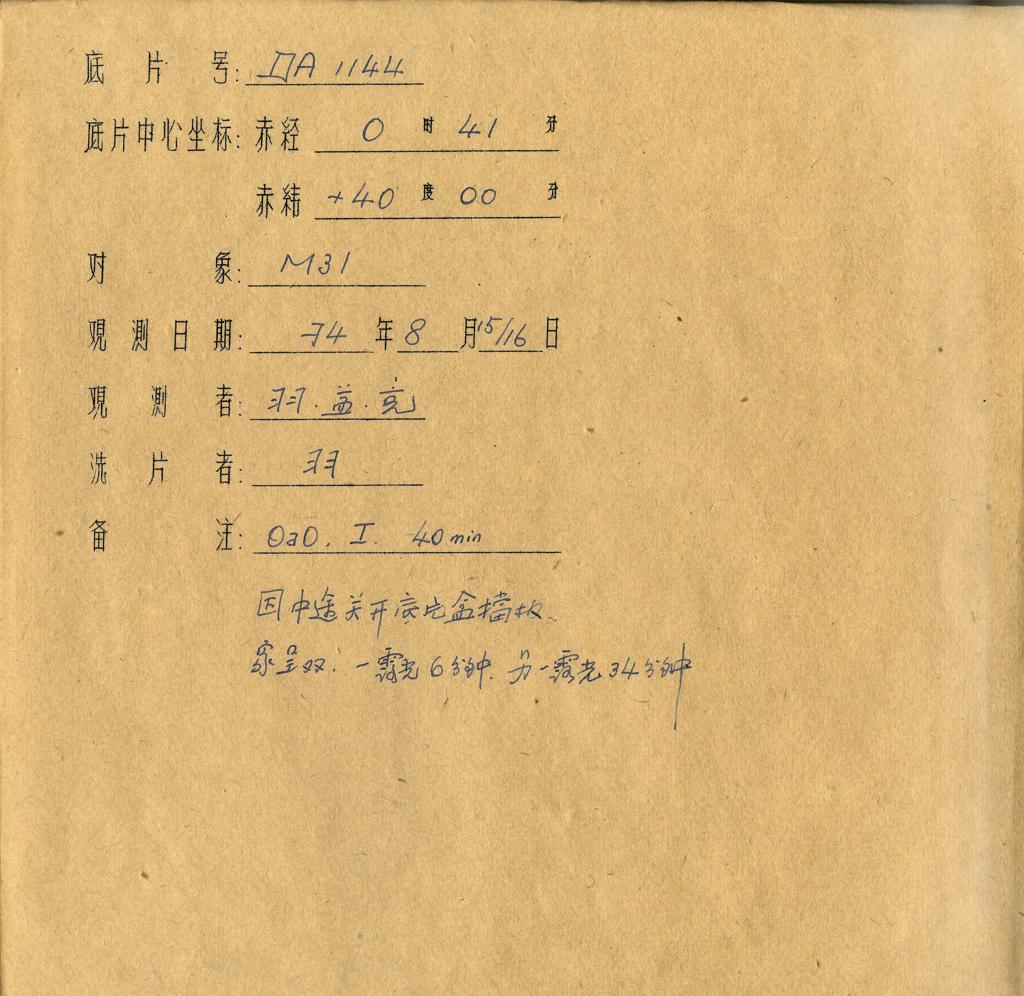 底片号: ДA 1144
底片中心坐标: 赤经 0 时 41 分
赤纬 +40 度 00 分
对象: M31
观测日期: 74 年 8 月 15/16 日
观测者: 羽.益.亮
洗片者: 羽
备注: OaO. I. 40 min
因中途关开底片盒档板.
象呈双. 一露光6分钟. 另一露光34分钟